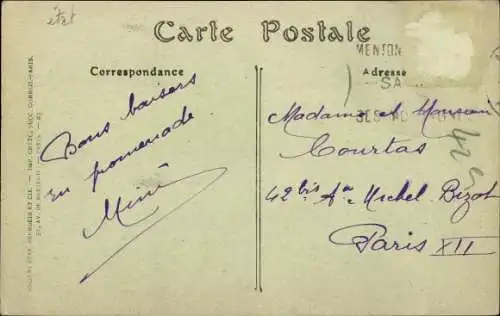 état
Carte Postale
MENTON
Correspondance
Adresse
SA
Bons baisers
en promenade
Mimi
Madame et Monsieur
Courtas
42 bis Av. Michel Bizot
Paris XII